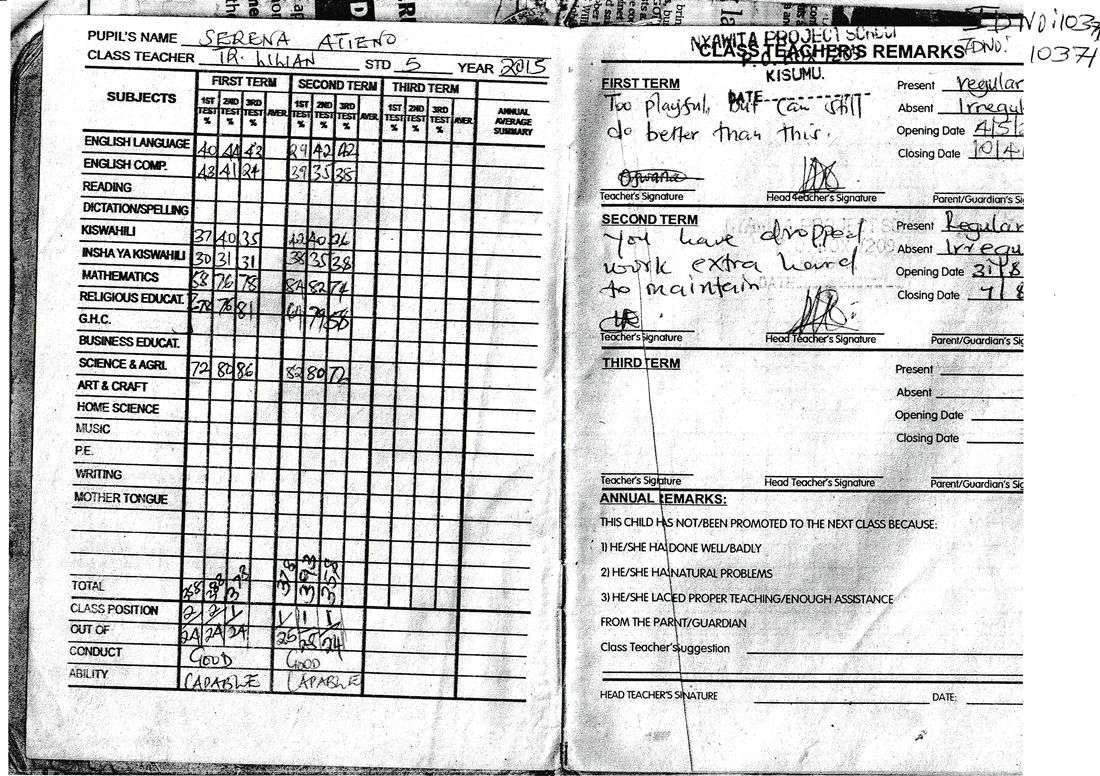 PUPIL'S NAME SERENA ATIENO
CLASS TEACHER TR. LILIAN STD 5 YEAR 2015
SUBJECTS FIRST TERM SECOND TERM THIRD TERM ANNUAL AVERAGE SUMMARY
1ST TEST % 2ND TEST % 3RD TEST % AVER. 1ST TEST % 2ND TEST % 3RD TEST % AVER. 1ST TEST % 2ND TEST % 3RD TEST % AVER.
ENGLISH LANGUAGE 40 44 43 29 42 42
ENGLISH COMP. 43 41 24 39 35 35
READING
DICTATION/SPELLING
KISWAHILI 37 40 35 42 40 26
INSHA YA KISWAHILI 30 31 31 38 35 38
MATHEMATICS 58 76 78 84 82 74
RELIGIOUS EDUCAT. 78 76 81 64 79 58
G.H.C.
BUSINESS EDUCAT.
SCIENCE & AGRI. 72 80 86 82 80 72
ART & CRAFT
HOME SCIENCE
MUSIC
P.E.
WRITING
MOTHER TONGUE
TOTAL 358 388 378 393
CLASS POSITION 2 2 1 1 1 1
OUT OF 24 24 24 25 25 24
CONDUCT GOOD GOOD
ABILITY CAPABLE CAPABLE
ID NO: 1037
NYAWITA PROJECT SCHOOL
CLASS TEACHER'S REMARKS
ADNO: 10374
KISUMU.
DATE
FIRST TERM
Too playful, but can still
do better than this.
Present regular
Absent Irregul
Opening Date 4/5
Closing Date 10/4
Teacher's Signature Head Teacher's Signature Parent/Guardian's Si
SECOND TERM
You have dropped
work extra hard
to maintain
DATE
Present Regular
Absent Irregu
Opening Date 31/8
Closing Date 7/8
Teacher's Signature Head Teacher's Signature Parent/Guardian's Si
THIRD TERM
Present
Absent
Opening Date
Closing Date
Teacher's Signature Head Teacher's Signature Parent/Guardian's Si
ANNUAL REMARKS:
THIS CHILD HAS NOT/BEEN PROMOTED TO THE NEXT CLASS BECAUSE:
1) HE/SHE HA DONE WELL/BADLY
2) HE/SHE HA NATURAL PROBLEMS
3) HE/SHE LACED PROPER TEACHING/ENOUGH ASSISTANCE
FROM THE PARNT/GUARDIAN
Class Teacher's uggestion
HEAD TEACHER'S SINATURE DATE: